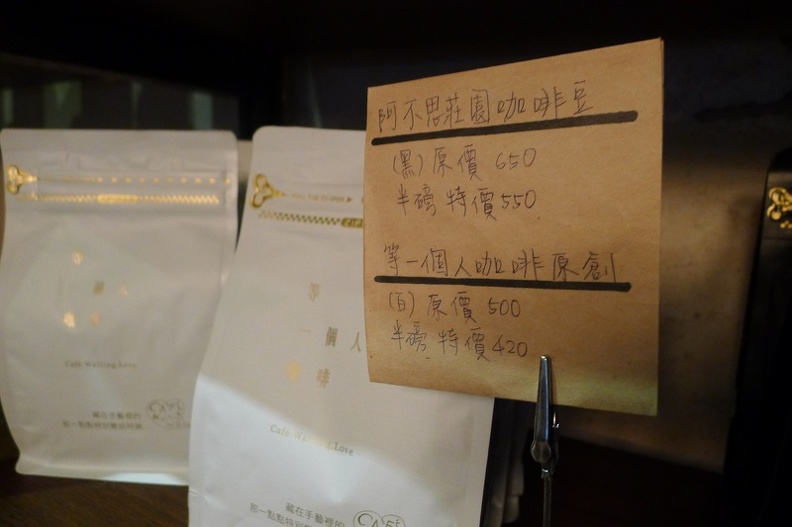 阿不思莊園咖啡豆
(黑)原價 650
半磅 特價 550
等一個人咖啡原創
(白)原價 500
半磅 特價 420
等
一個人
咖啡
Café.Waiting.Love
藏在手藝裡的
那一點點特別
CAFE
等
一個人
咖啡
Café.Waiting.Love
藏在手藝裡的